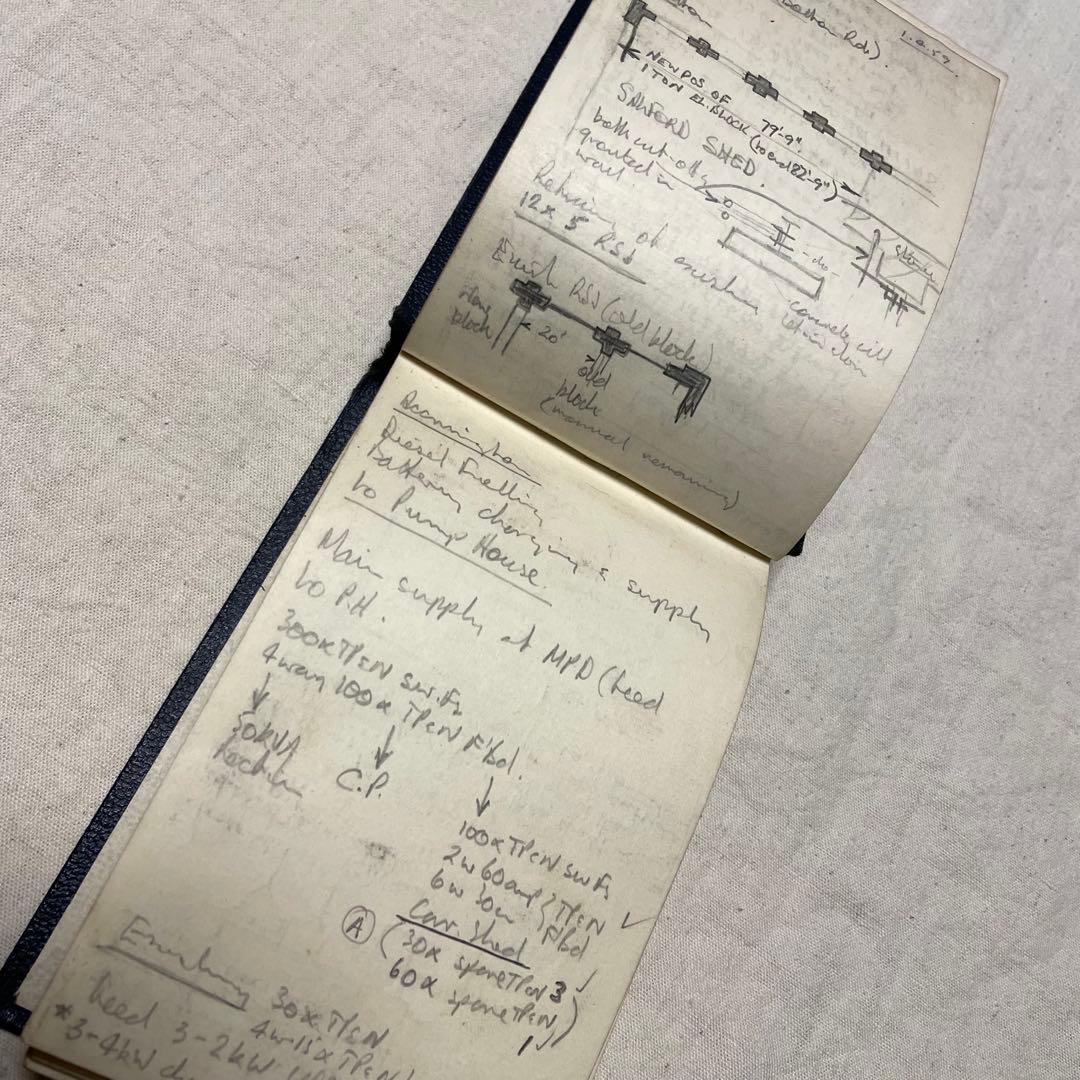 1.9.59.
NEW POS OF
1 TON EL. BLOCK
79'-9"
(to end 82'-9")
SALFORD SHED.
both cut off &
grouted in
wall.
of existing
12 x 5 RSJ
Exist. RSJ (old block)
block
20'
old
block
(manual remaining)
Accrington
Diesel Fuelling
battery charging & supply
to Pump House.
Main supply at MPD (feed
to P.H.
300x TPEN sw.Fs
4 way 100x TPEN F'bd.
50KVA
C.P.
100x TPEN sw Fs
2w 60amp } TPEN
6w 30 } F'bd
Carr. Shed
A (30x spare TPEN 3
60x spare TPEN 1)
30x TPEN
4w 15x TPEN
feed 3-2kW
*3-4kW